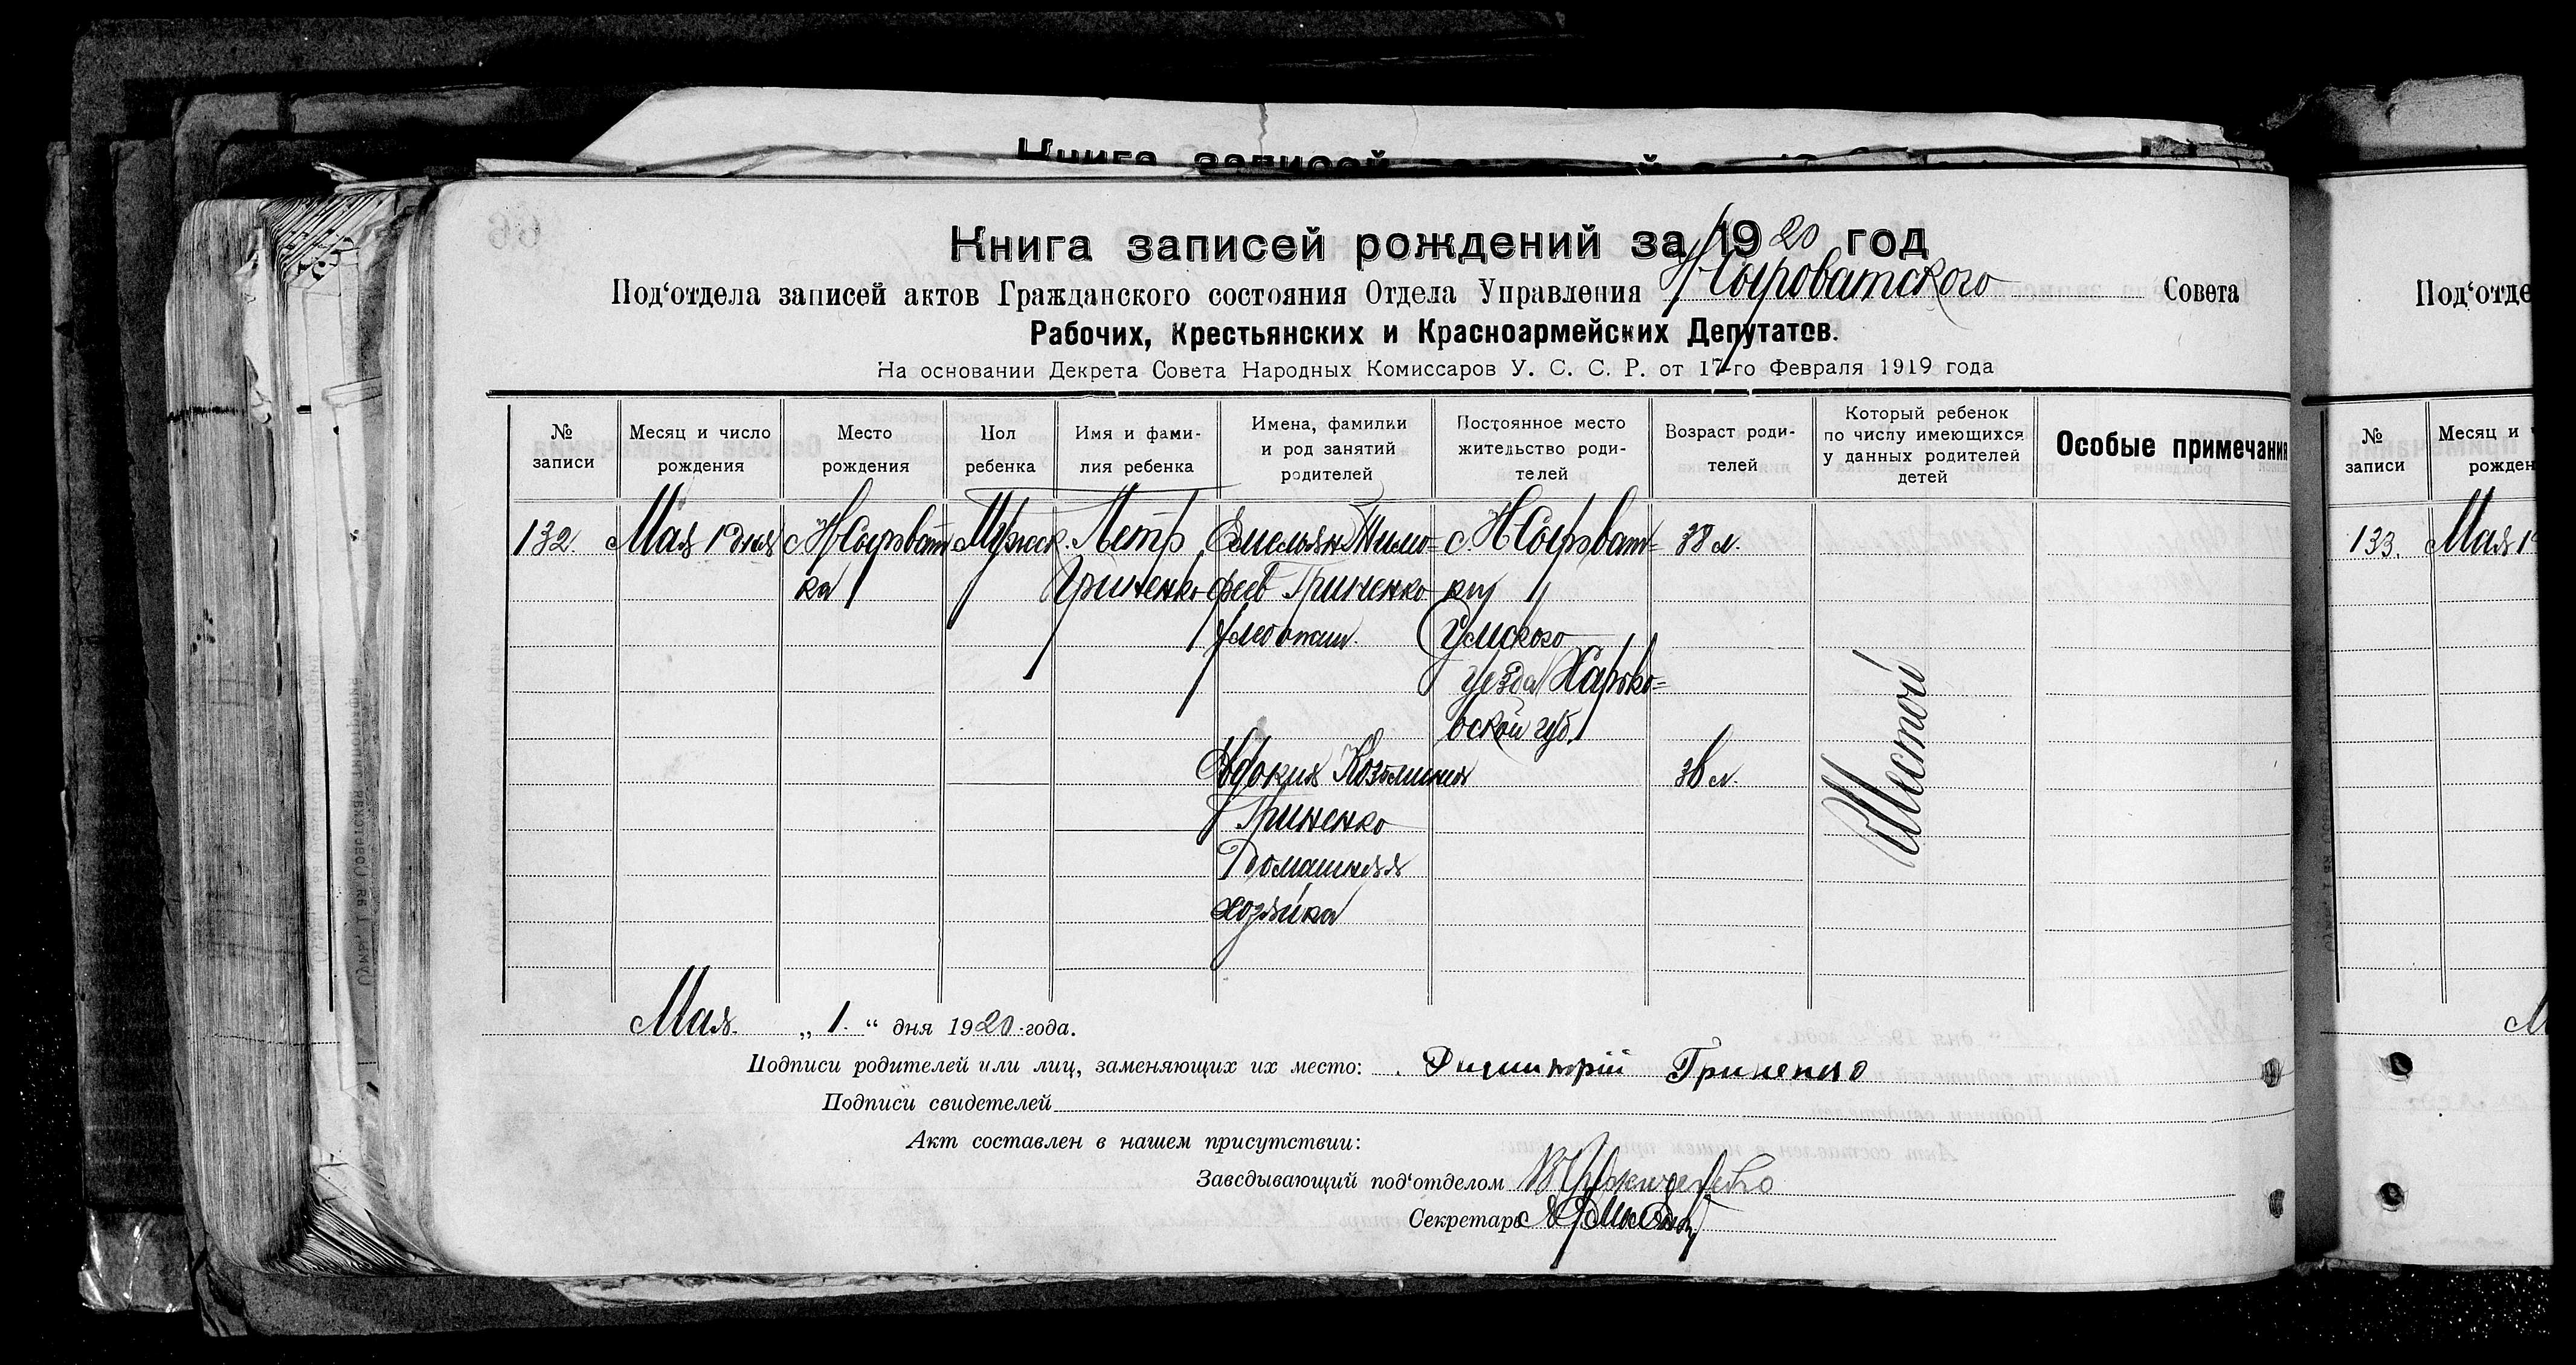 Книга записей рождений за 1920 год
Под‘отдела записей актов Гражданского состояния Отдела Управления Н Сыроватского Совета
Рабочих, Крестьянских и Красноармейских Депутатов.
На основании Декрета Совета Народных Комиссаров У. С. С. Р. от 17-го Февраля 1919 года
№ записи
Месяц и число рождения
Место рождения
Пол ребенка
Имя и фамилия ребенка
Имена, фамилии и род занятий родителей
Постоянное место жительство родителей
Возраст родителей
Который ребенок по числу имеющихся у данных родителей детей
Особые примечания
132.
Мая 1 дня
с Н Сыроват
ка
Мужск.
Петр
Гриненко
Емельян Тимо=
феев Гриненко
хлебопаш.
Евдокия Козьминия
Гриненко
Домашняя
хозяйка
с. Н Сыроват=
ки
Сумского
уезда Харько=
вской губ.
38 л.
Шестой
Мая „ 1. “ дня 1920 года.
Подписи родителей или лиц, заменяющих их место: Димитрій Гриненко
Подписи свидетелей
Акт составлен в нашем присутствии:
Заведывающий под‘отделом
Секретарь
Под‘отде
№ записи
Месяц и
рожден
133.
Мая 1